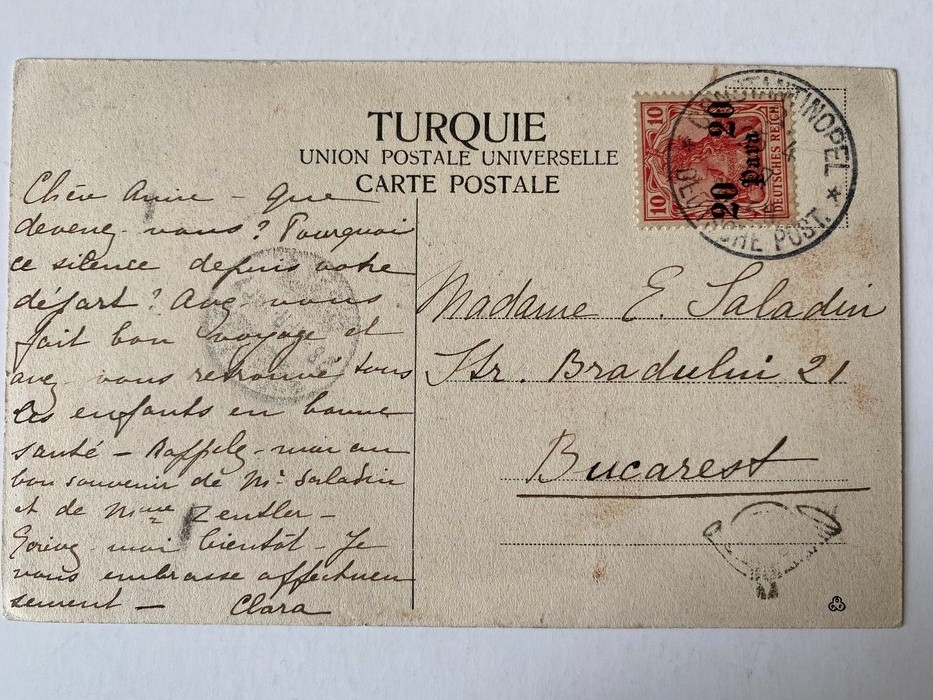 TURQUIE
UNION POSTALE UNIVERSELLE
CARTE POSTALE
10 10
20 20
Para
DEUTSCHES REICH
CONSTANTINOPEL
DEUTSCHE POST.
Chère Amie - que
devenez-vous? Pourquoi
ce silence depuis votre
départ? Avez vous
fait bon voyage et
avez-vous retrouvé tous
les enfants en bonne
santé - Rappelez-moi au
bon souvenir de Mr Saladin
et de Mme Zentler -
Ecrivez-moi bientôt - Je
vous embrasse affectueu
sement - Clara
Madame E. Saladin
Str. Bradului 21
Bucarest